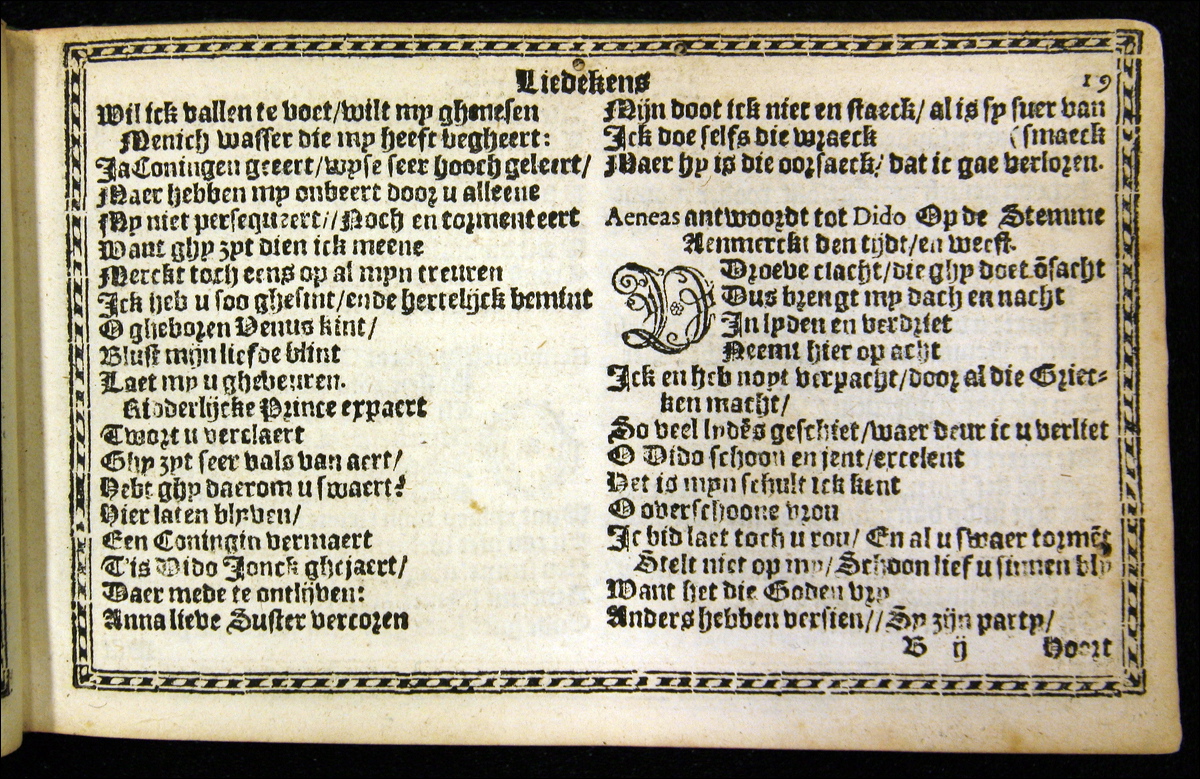 Liedekens
19
Wil ick vallen te voet/wilt my ghenesen
Menich wasser die my heeft begheert:
Ja Coningen geeert/wyse seer hooch geleert/
Maer hebben my onbeert door u alleene
My niet persequeert//Noch en tormenteert
Want ghy zyt dien ick meene
Merckt toch eens op al myn treuren
Ick heb u soo ghesint/ende hertelijck bemint
O gheboren Venus kint/
Blust mijn liefde blint
Laet my u ghebeuren.
Ridderlijcke Prince expaert
Twort u verclaert
Ghy zyt seer vals van aert/
Hebt ghy daerom u swaert?
Hier laten blyven/
Een Coningin vermaert
T'is Dido Jonck ghejaert/
Daer mede te ontlijven:
Anna lieve Suster vercoren
Mijn doot ick niet en staeck/ al is sy suer van
Ick doe selfs die wraeck (smaeck
Maer hy is die oorsaeck/ dat ic gae verloren.
Aeneas antwoordt tot Dido Op de Stemme
Aenmerckt den tijdt/en weest.
Droeve clacht/die ghy doet õsacht
Dus brengt my dach en nacht
In lyden en verdriet
Neemt hier op acht
Ick en heb noyt verpacht/door al die Griec-
ken macht/
So veel lydẽs geschiet/waer deur ic u verliet
O Dido schoon en jent/excelent
Het is myn schult ick kent
O overschoone vrou
Ic bid laet toch u rou/ En al u swaer tormẽt
Stelt niet op my/Schoon lief u sinnen bly
Want het die Goden vry
Anders hebben versien//Sy zijn party/
B ij Hoort